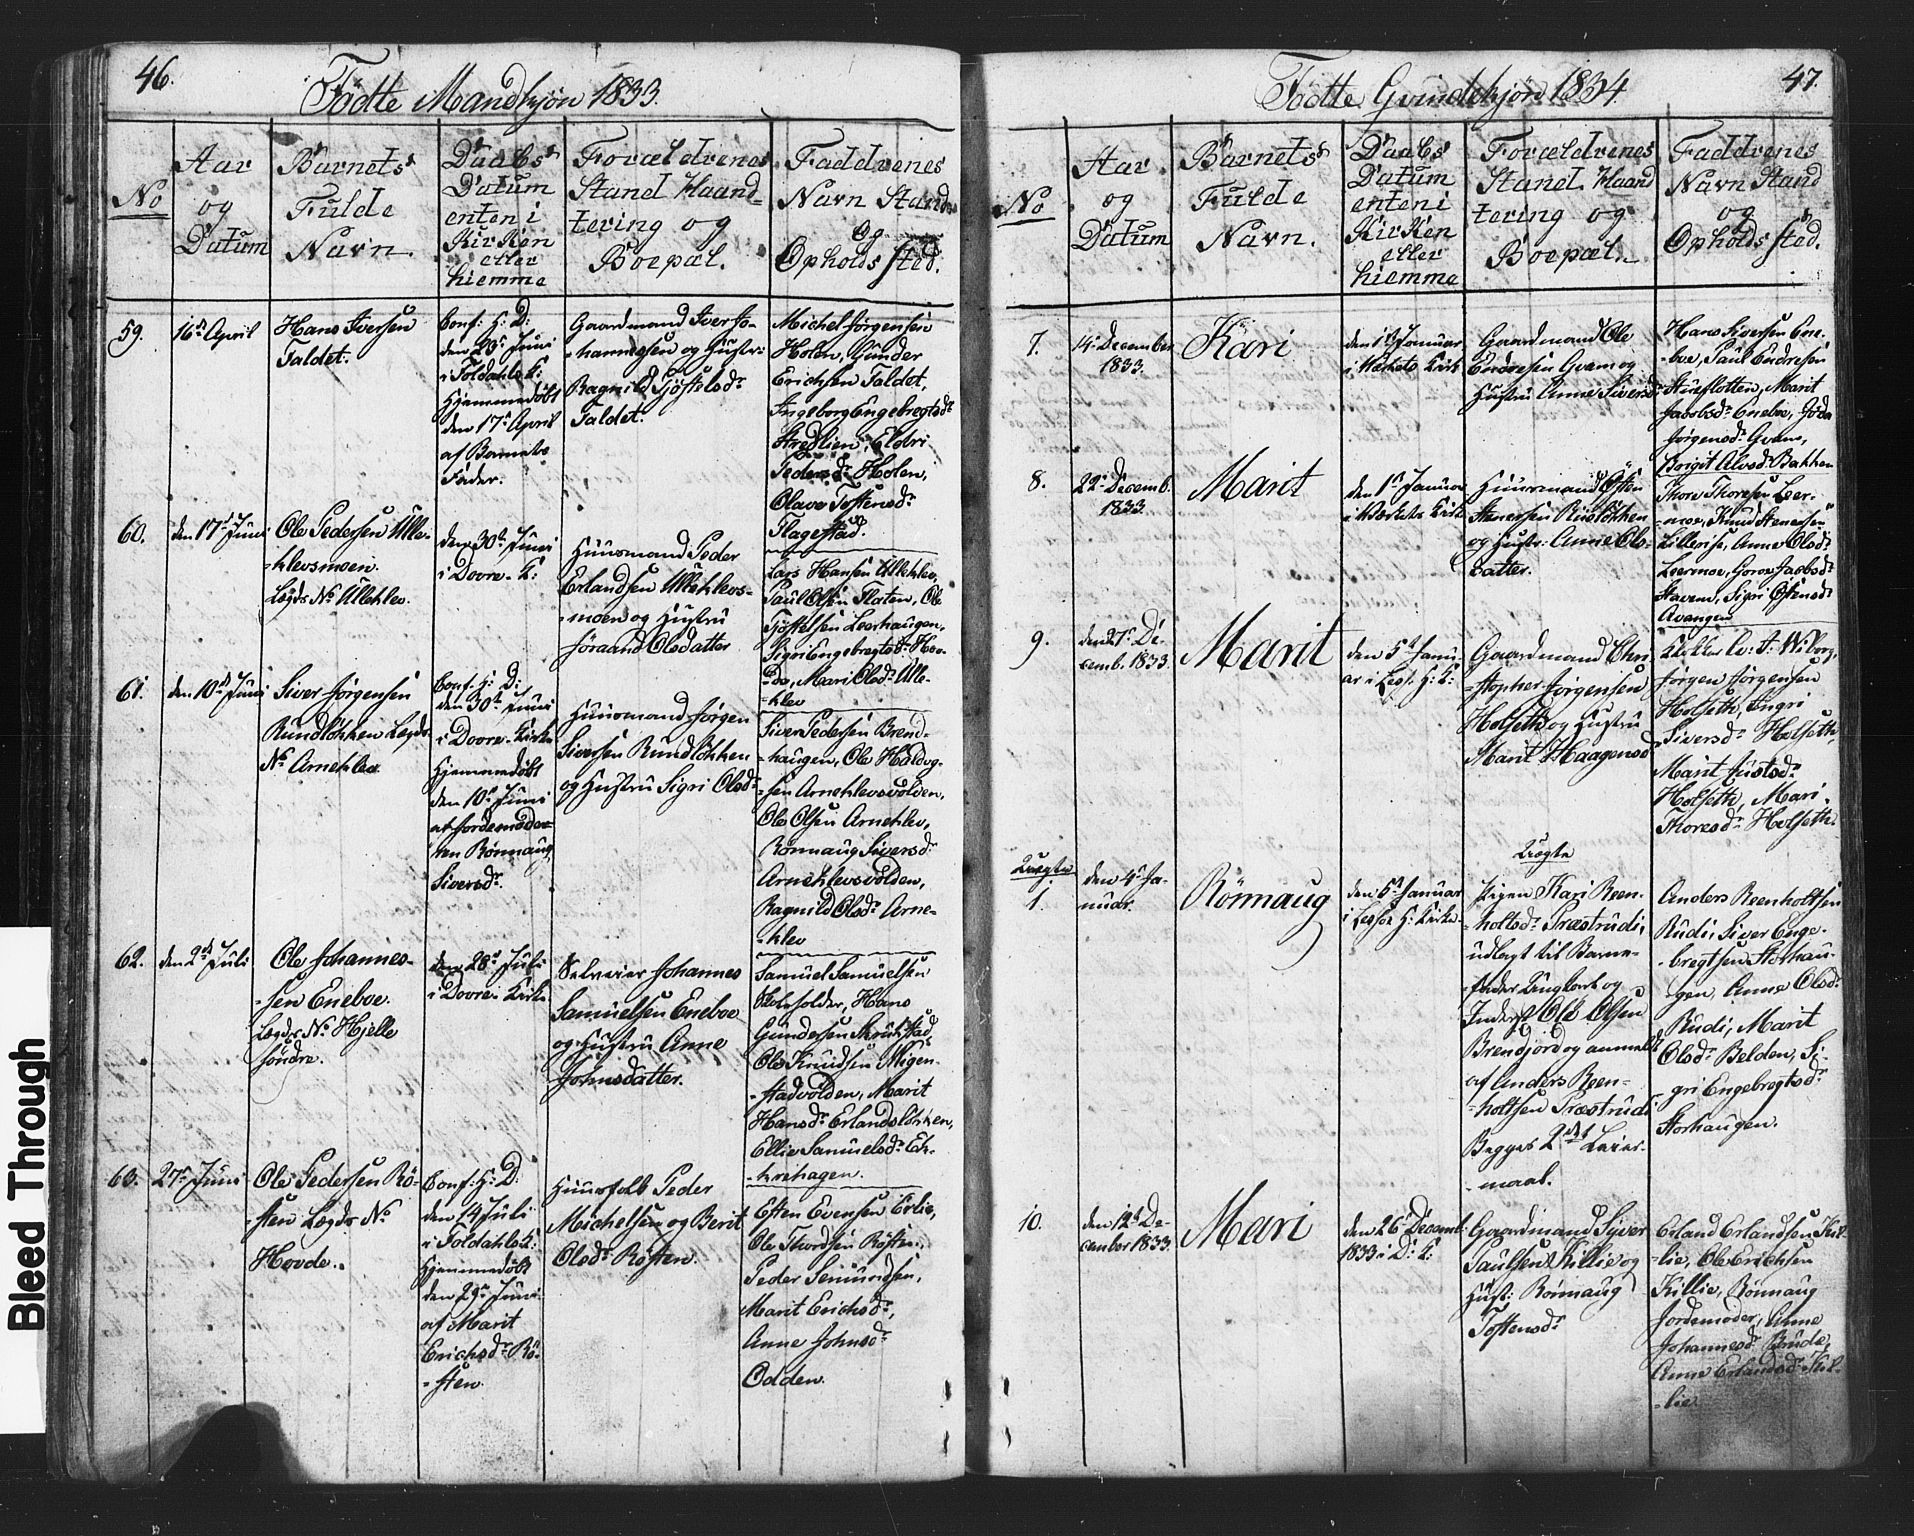 46.
Födte Mandkjön 1833.
No
Aar
og
Datum
Barnets
Fulde
Navn.
Daabs
Datum
enten i
Kirken
eller
hiemme
Forældrenes
Stand Haand-
tering og
Boepæl.
Faddrenes
Navn Stand
og
Opholds sted.
59.
16de April
Hans Iversen
Faldet.
Conf: H: D:
den 23de Juni
i Foldahls K:
Hjemmedöbt
den 17de April
af Barnets
Fader.
Gaardmand Iver Jo-
-hannessen og Hustru
Ragnild Tjöstelsdr
Faldet.
Michel Jörgensen
Holen, Gunder
Erichsen Faldet,
Ingeborg Engebregtsdr
Stredlien, Eldri
Pedersdr Holen,
Olave Toftensdr
Flagestad.
60.
den 17de Juni
Ole Pedersen Ulle-
-klevsmoen.
Lægds No Ullehlev.
den 30te Juni
i Dovre K:
Huusmand Peder
Erlandsen Ullehlevs-
-moen og Hustru
Jöraand Olsdatter
Lars Hansen Ullehlev,
Paul Olsen Flaten, Ole
Tjöstelsen Leerhaugen,
Sigri Engebregtsdr Hov-
-de, Mari Olsdr Ulle-
-hlev
61.
den 10de Juni
Siver Jörgensen
Rundlökken Lægds
No Arnehlev
Conf: H: D:
den 30te Juni
i Dovre Kirke
Hjemmedöbt
den 10de Juni
af Jordemoder-
ren Rönnaug
Siversdr.
Huusmand Jörgen
Siversen Rundlökken
og Hustru Sigri Olsdr
Siver Pedersen Brend-
-haugen, Ole Haldog-
-sen Arnehlevsvolden,
Ole Olsen Arnehlev,
Rönnaug Siversdr
Arnehlevsvolden,
Ragnild Olsdr Arne-
-hlev
62.
den 2den Juli
Ole Johannes-
-sen Eneboe.
Lægds No Hjelle
söndre.
den 28de Juli
i Dovre Kirke
Selveier Johannes
Samuelsen Eneboe
og Hustru Anne
Johnsdatter.
Samuel Samuelsen
Holeholder, Hans
Gundersen Skrutstad,
Ole Knudsen Migen-
-stadvolden, Marit
Hansdr Erlandslökken,
Ellie Samuelsdr Ek-
-krehagen.
63.
27de Juni
Ole Pedersen Rö-
-sten Lægds No
Hovde.
Conf: H: D:
den 14 Juli
i Foldahls K:
Hjemmedöbt
den 29de Juni
af Marit
Erichsdr Rö-
-sten
Huusfolk Peder
Michelsen og Berit
Olsdr Rösten.
Esten Evensen Erlie,
Ole Thordsen Rösten,
Peder Semundsen,
Marit Erichsdr,
Anne Johnsdr
Odden.
47.
Födte Qvindekjön 1834.
No
Aar
og
Datum
Barnets
Fulde
Navn.
Daabs
Datum
enten i
Kirken
eller
hiemme
Forældrenes
Stand Haand
tering og
Boepæl.
Faddrenes
Navn Stand
og
Opholds sted.
7.
14de December
1833.
Kari
den 1ste Januar
i Vækets Kirke
Gaardmand Ole
Endresen Qvam og
Hustru Anne Siversdr
Hans Siversen Ene-
-boe, Paul Endresen
Stueflotten, Marit
Jacobsdr Eneboe, Joda
Jörgensdr Qvam,
Brigit Alvsdr Bakken
8.
22de Decemb.
1833
Marit
den 1ste Januar
i Værkets Kirke
Huusmand Östen
Stenersen Ruslökken
og Hustr: Anne Ols-
datter.
Thore Thoresen Leer-
-moe, Knud Stenersen
Lillerise, Anne Olsdr
Leermoe, Goro Jacobsdr
Stavem, Sigri Östensdr
Avangen
9.
den 27de De-
cemb. 1833.
Marit
den 5te Janu-
ar i Lesj. H: K:
Gaardmand Chri-
-stopher Jörgensen
Holseth og Hustru
Marit Haagensdr
Klokker Lv: F: Wiborg,
Jörgen Jörgensen
Holseth, Ingri
Siversdr Holseth,
Marit Justsdr
Holseth, Mari
Thoresdr Holseth.
Uægte
1.
den 4de Ja-
nuar.
Rönnaug
den 6te Januar
i Lessøe H: Kirke
Uægte
Pigen Kari Reen-
-holtsdr Træstrudi,
udlagt til Barne-
-fader Ungkarl og
Inderst Ole Olsen
Brendjord og anmeldt
af Anders Reen-
-holtsen Træstrudi
Begges 2det Leier-
-maal.
Anders Reenholtsen
Rudi, Siver Enge-
-bregtsen Storhau-
-gen, Anne Olsdr
Rudi, Marit
Olsdr Belden, Si-
-gri Engebregtsdr
Storhaugen.
10.
den 12te De-
cember 1833.
Mari
den 26de Decemb.
1833 i D: K:
Gaardmand Syver
Paulsen Killie og
Hust: Rönnaug
Toftensdr
Erland Erlandsen Kil-
-lie, Ole Erichsen
Killie, Rönnaug
Jordemoder, Anne
Johannesdr Bude,
Anne Erlandsdr Kil-
-lie
Bleed Through